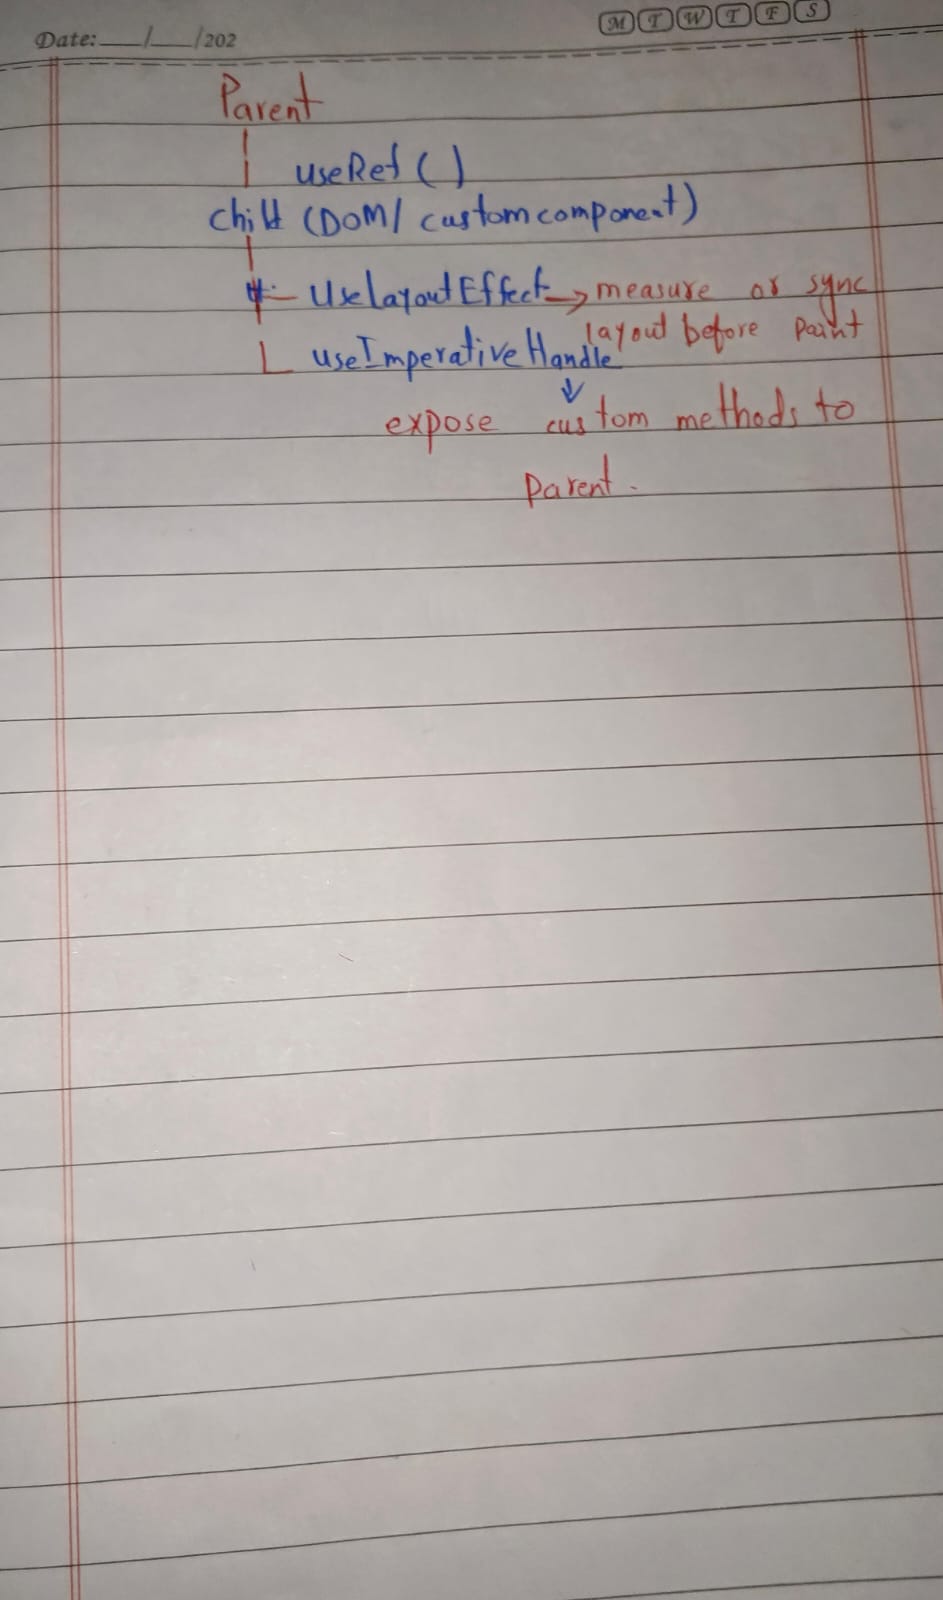 Date:___/___/202
M T W T F S
Parent
useRef ()
child (DOM/ custom component)
UselayoutEffect → measure or sync
layout before paint
useImperativeHandle
↓
expose custom methods to
parent.